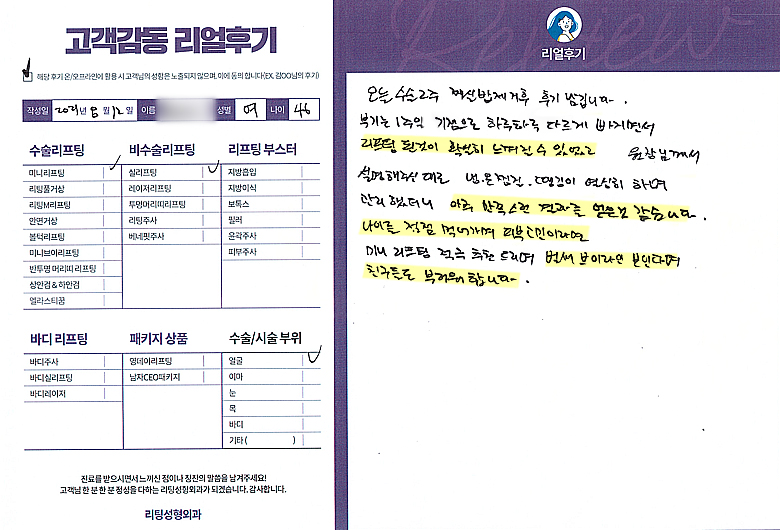 고객감동 리얼후기
해당 후기 온/오프라인에 활용 시 고객님의 성함은 노출되지 않으며, 이에 동의 합니다(EX. 김OO님의 후기)
작성일 2021년 8월 12일 이름 성별 여 나이 46
수술리프팅
미니리프팅
리팅풀거상
리팅M리프팅
안면거상
볼턱리프팅
미니브이리프팅
반투명 머리띠 리프팅
상안검 & 하안검
엘라스티꿈
비수술리프팅
실리프팅
레이저리프팅
투명머리띠리프팅
리팅주사
베네핏주사
리프팅 부스터
지방흡입
지방이식
보톡스
필러
윤곽주사
피부주사
바디 리프팅
바디주사
바디실리프팅
바디레이저
패키지 상품
원데이리프팅
남자CEO패키지
수술/시술 부위
얼굴
이마
눈
목
바디
기타 ( )
진료를 받으시면서 느끼신 점이나 칭찬의 말씀을 남겨주세요!
고객님 한 분 한 분 정성을 다하는 리팅성형외과가 되겠습니다. 감사합니다.
리팅성형외과
Review
리얼후기
오늘 수술2주 실밥제거후 후기 남깁니다.
붓기는 1주일 기점으로 하루하루 다르게 빠지면서
리프팅 된것이 확연히 느껴질 수 있었고 원장님께서
설명해주신 대로 냉.온찜질. 땡김이 열심히 하며
관리 했더니 아주 만족스런 결과를 얻은것 같습니다.
나이를 점점 먹어가며 피부고민이라면
미니 리프팅 적극 추천 드리며 벌써 브이라인 보인다며
친구들도 부러워 합니다.